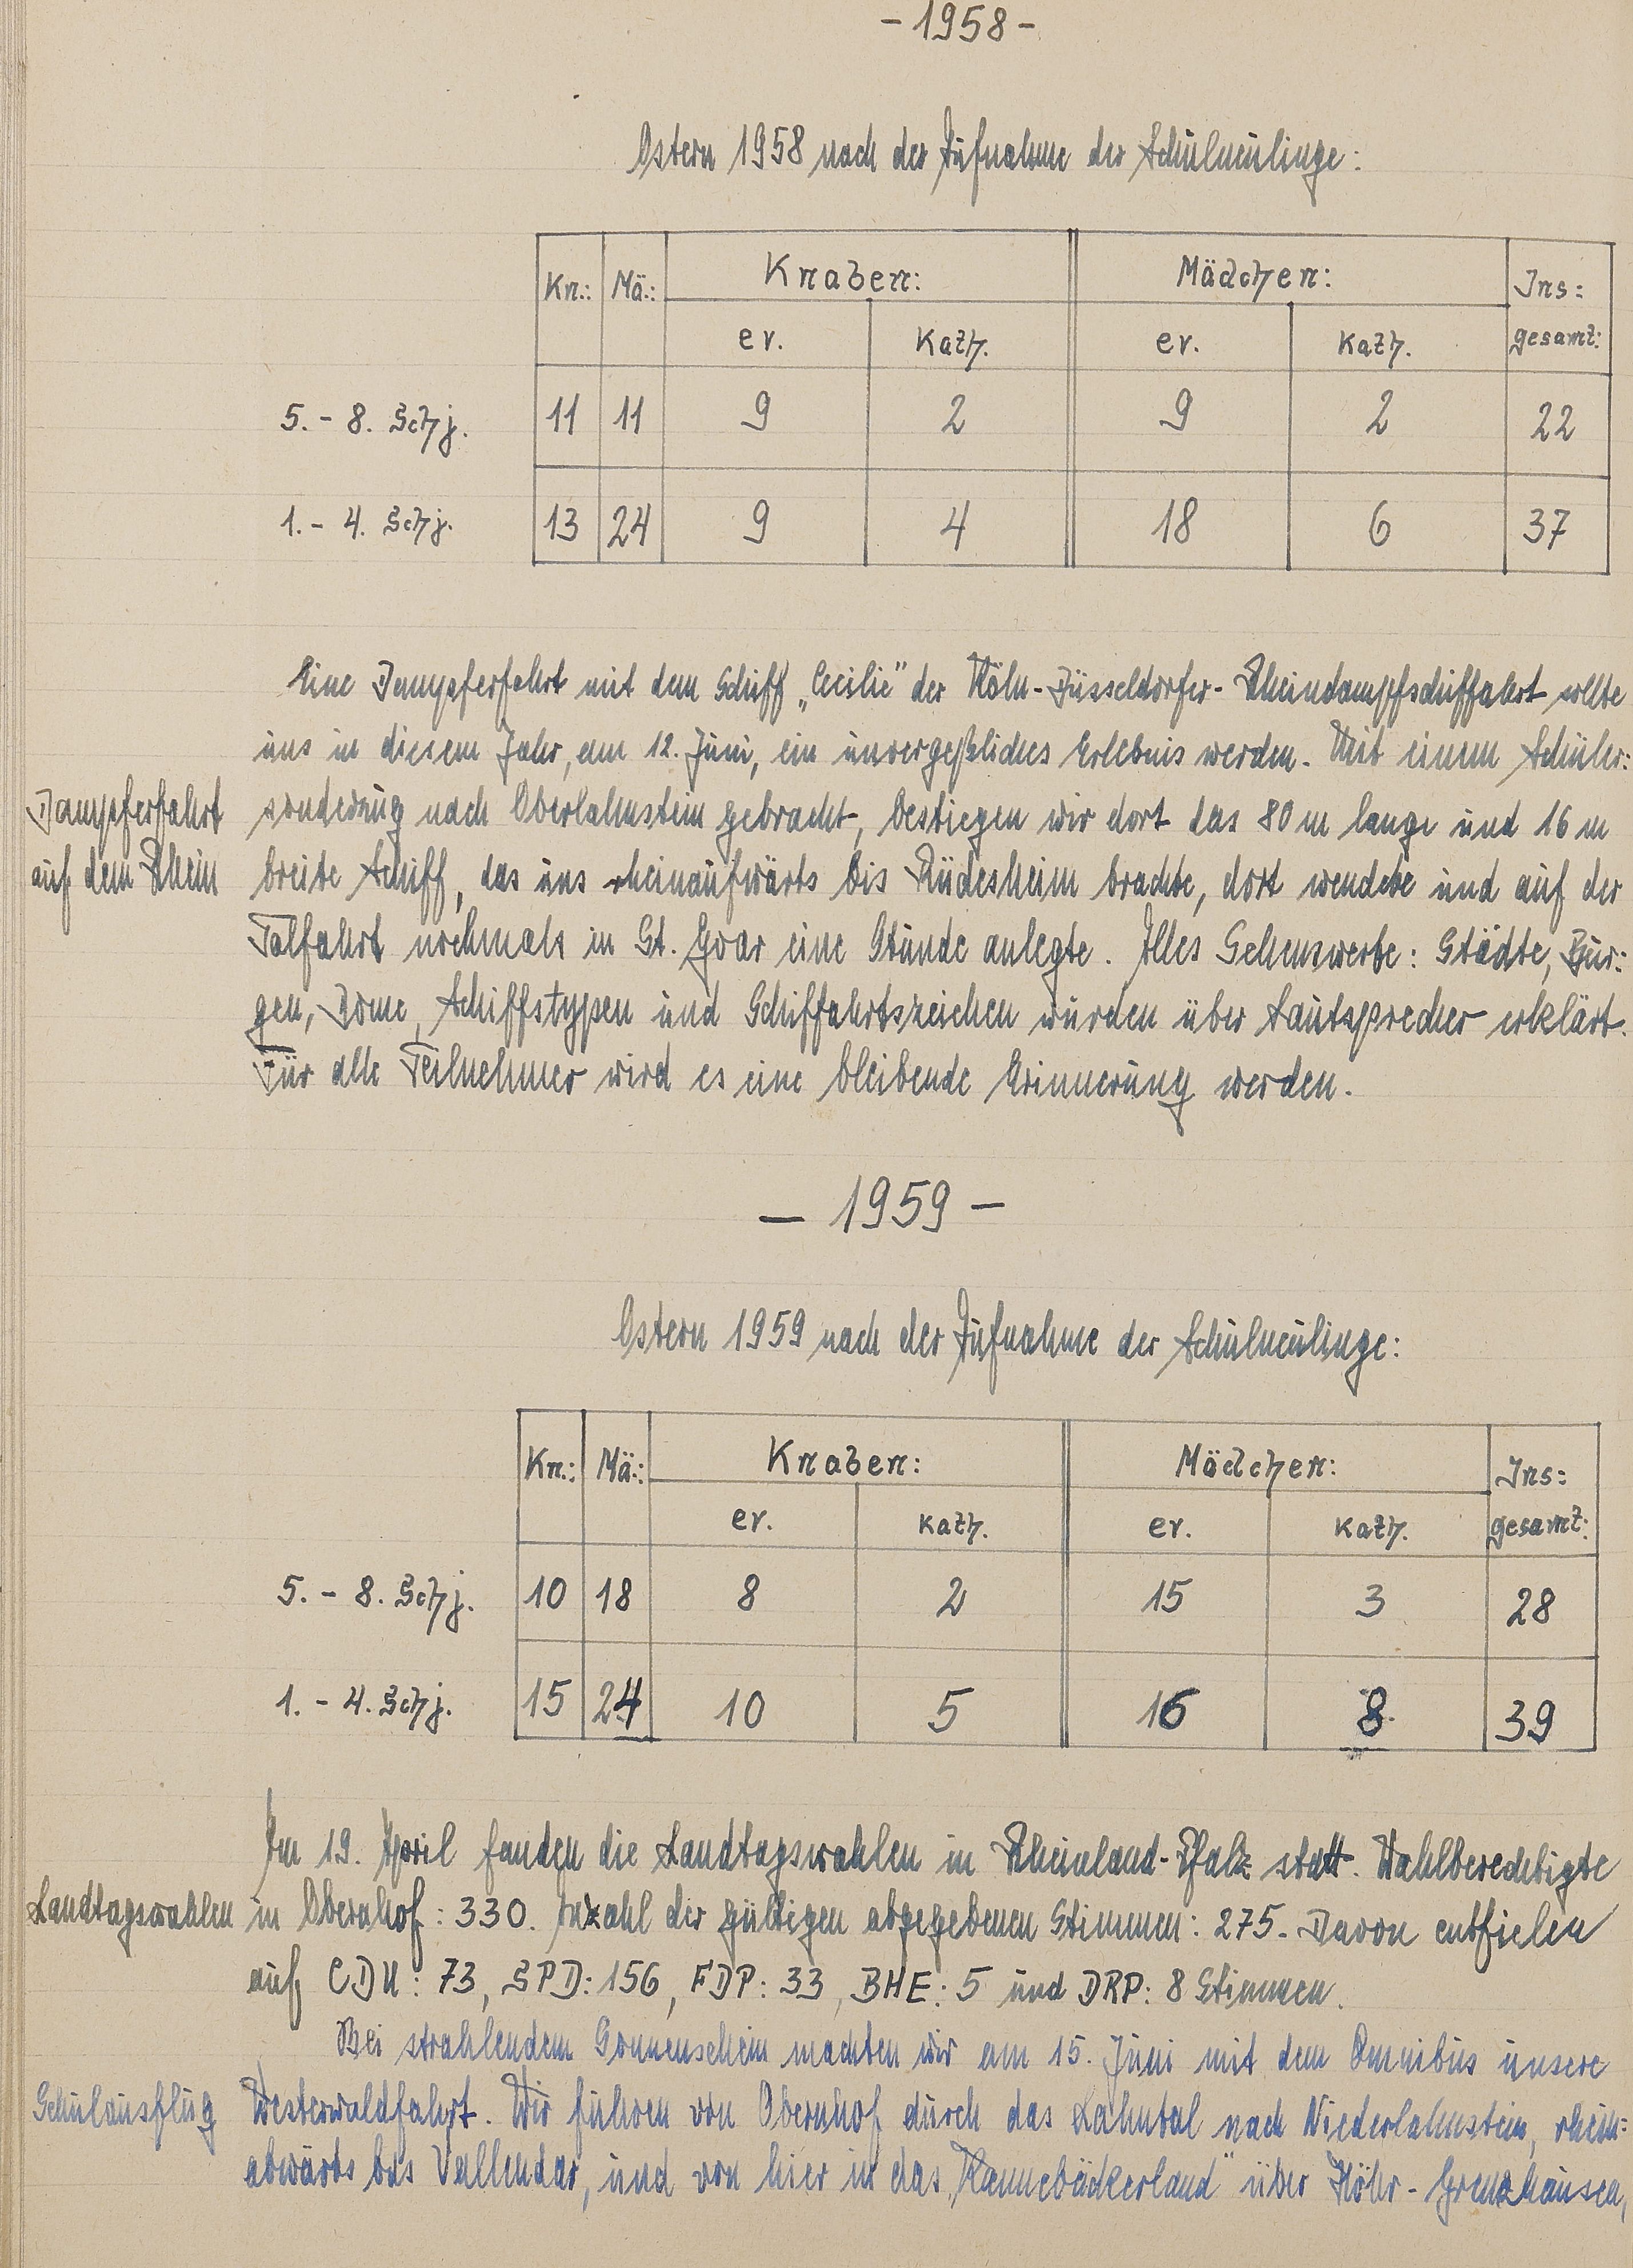 - 1958 -
Ostern 1958 nach der Aufnahme der Schulneulinge:
Kn.: Mä.: Knaben: Mädchen: Ins=
ev. kath. ev. kath. gesamt:
5. - 8. Schj. 11 11 9 2 9 2 22
1. - 4. Schj. 13 24 9 4 18 6 37
Eine Dampferfahrt mit dem Schiff „Cecilie" der Köln-Düsseldorfer-Rheindampfschiffahrt sollte
uns in diesem Jahr, am 12. Juni, ein unvergeßliches Erlebnis werden. Mit einem Schüler=
Dampferfahrt
sonderzug nach Oberlahnstein gebracht, bestiegen wir dort das 80 m lange und 16 m
auf dem Rhein
breite Schiff, das uns rheinaufwärts bis Rüdesheim brachte, dort wendete und auf der
Talfahrt nochmals in St. Goar eine Stunde anlegte. Alles Sehenswerte: Städte, Bur=
gen, Dome, Schiffstypen und Schiffahrtszeichen wurden über Lautsprecher erklärt.
Für alle Teilnehmer wird es eine bleibende Erinnerung werden.
- 1959 -
Ostern 1959 nach der Aufnahme der Schulneulinge:
Kn.: Mä.: Knaben: Mädchen: Ins=
ev. kath. ev. kath. gesamt:
5. - 8. Schj. 10 18 8 2 15 3 28
1. - 4. Schj. 15 24 10 5 16 8 39
Am 19. April fanden die Landtagswahlen in Rheinland-Pfalz statt. Wahlberechtigte
Landtagswahlen
in Obernhof: 330. Anzahl der gültigen abgegebenen Stimmen: 275. Davon entfielen
auf CDU: 73, SPD: 156, FDP: 33, BHE: 5 und DRP: 8 Stimmen.
Bei strahlendem Sonnenschein machten wir am 15. Juni mit dem Omnibus unsere
Schulausflug
Westerwaldfahrt. Wir fuhren von Obernhof durch das Lahntal nach Niederlahnstein, rhein=
abwärts bis Vallendar, und von hier in das „Kannebäckerland" über Höhr-Grenzhausen,